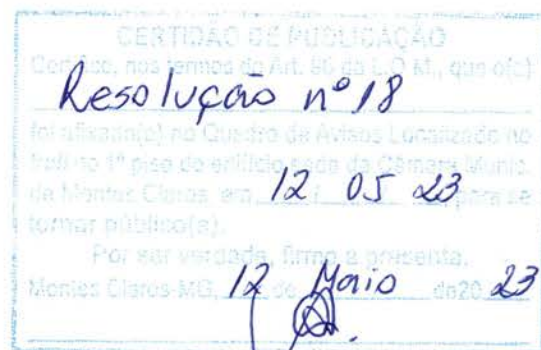 CERTIDÃO DE PUBLICAÇÃO
Certifico, nos termos do Art. 96 da L.O.M., que o(a)
Resolução nº 18
foi afixado(a) no Quadro de Avisos Localizado no
hall no 1º piso do edifício sede da Câmara Munic.
de Montes Claros, em, 12 05 23, para se
tornar público(a).
Por ser verdade, firmo a presente.
Montes Claros-MG, 12 de Maio de 20 23